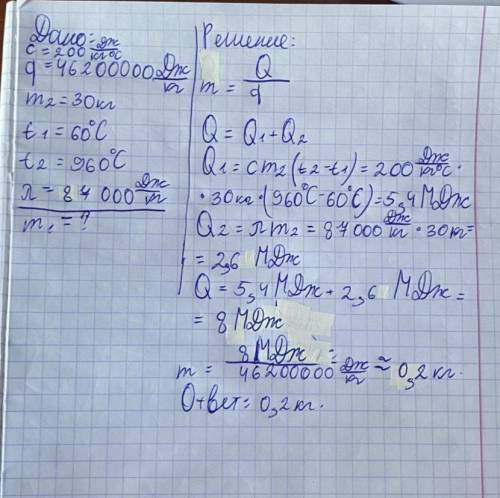 Дано:
c = 200 Дж/кг°С
q = 46200000 Дж/кг
m2 = 30 кг
t1 = 60°С
t2 = 960°С
λ = 87 000 Дж/кг
m1 = ?
Решение:
m = Q/q
Q = Q1 + Q2
Q1 = cm2(t2 - t1) = 200 Дж/кг°С ·
· 30 кг · (960°С - 60°С) = 5,4 МДж
Q2 = λm2 = 87000 Дж/кг · 30 кг =
= 2,6 МДж
Q = 5,4 МДж + 2,6 МДж =
= 8 МДж
m = 8 МДж / 46200000 Дж/кг ≈ 0,2 кг.
Ответ = 0,2 кг.